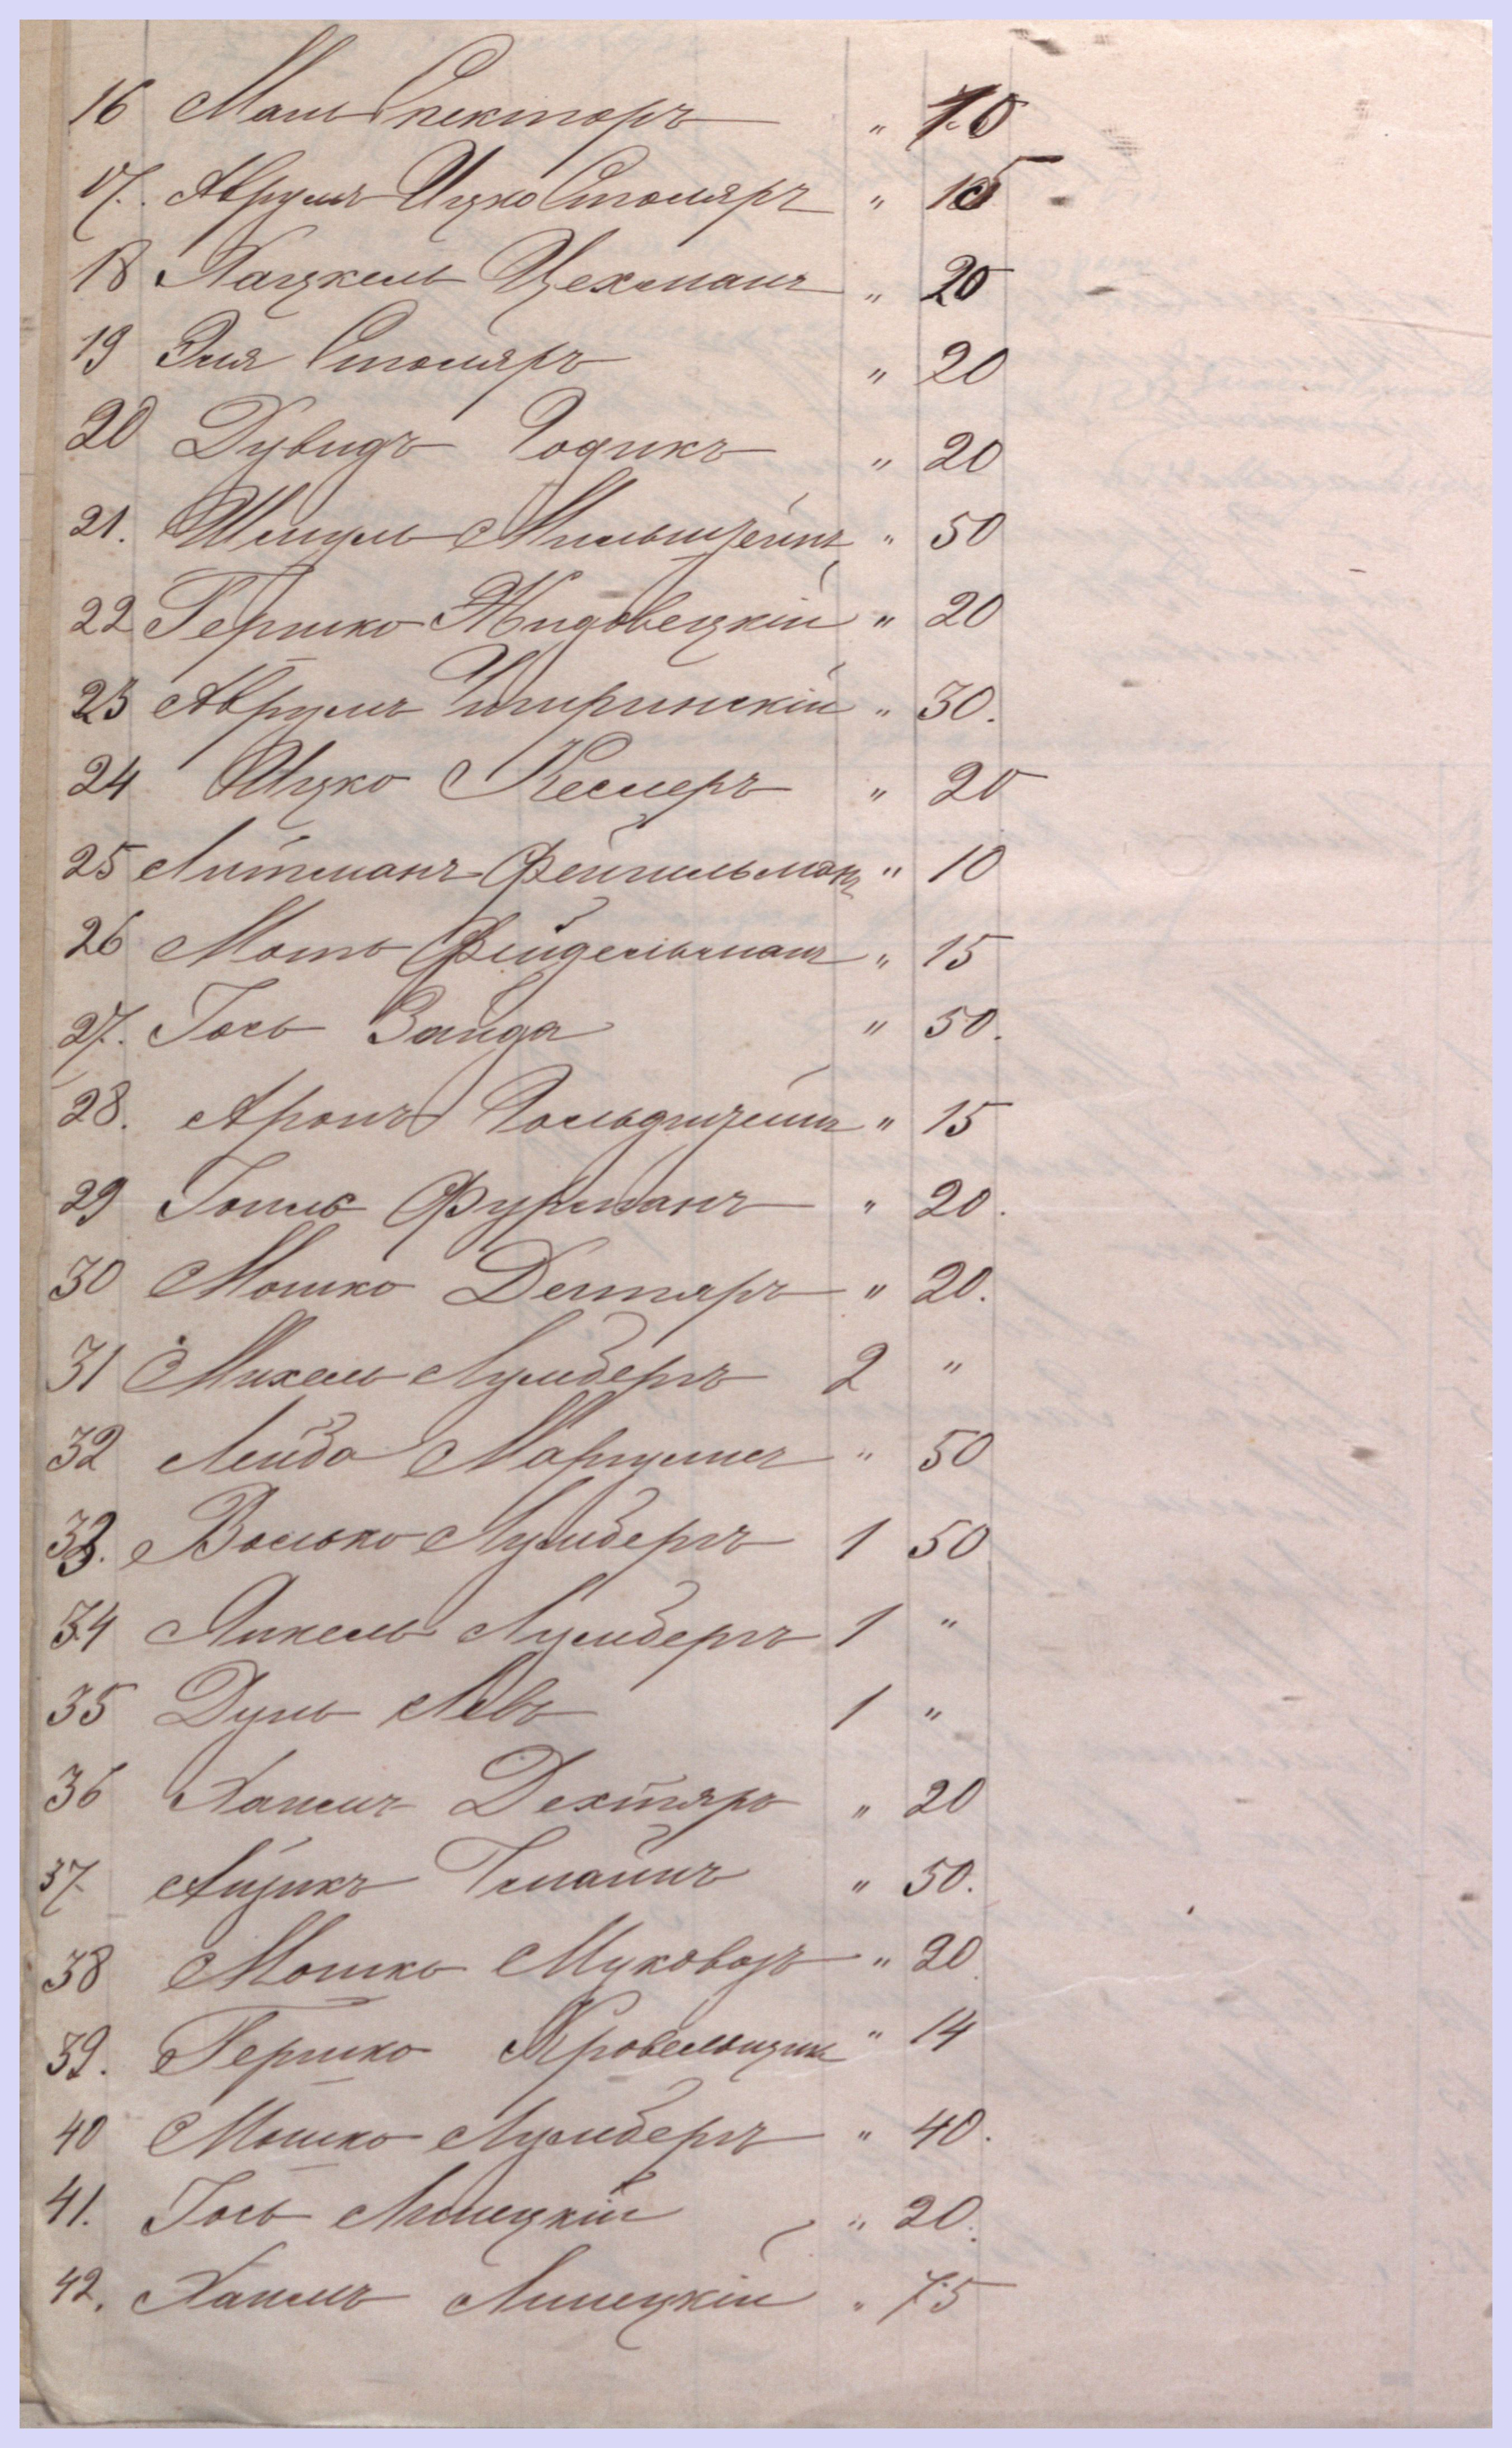 16 Маш Спекторъ " 10
17. Аврумъ Ицко Столяръ " 15
18 Хацкель Цехманъ " 20
19 Эля Столяръ " 20
20 Дувидъ Годикъ " 20
21. Шмуль Мильштейнъ " 50
22 Гершко Жидовецкій " 20
23 Аврумъ Чигринскій " 30.
24 Ицко Кеслеръ " 20
25 Литманъ " 10
26 Моть Фейдельманъ " 15
27. Іось Зайда " 50.
28. Аронъ Гольдштейнъ " 15
29 Іопль Фурманъ " 20.
30 Мошко Дегтяръ " 20.
31 Михель Лумберъ 2 "
32 Лейба Маргулисъ " 50
33. Волько Лумберъ 1 50
34 Янкель Лумберъ 1 "
35 Дунь Левъ 1 "
36 Хаимъ Дехтяръ " 20
37 Айзикъ " 50.
38 Мошко Муковозъ " 20
39. Гершко Кровельщикъ " 14
40 Мошко Лумберъ " 40.
41. Іось Липецкій " 20.
42. Хаимъ Липецкій " 75